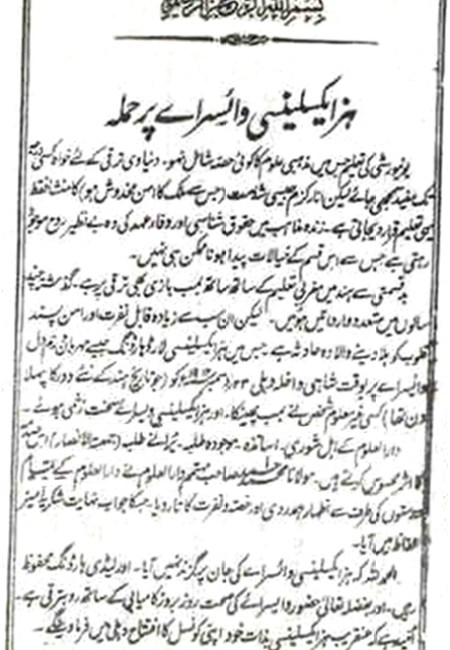 بسم اللہ الرحمن الرحیم
ہز ایکسلینسی وائسراے پر حملہ
یونیورسٹی کی تعلیم جس میں مذہبی علوم کا کوئی حصہ شامل نہو۔ دنیاوی ترقی کے لئے خواہ کسی درجہ
تک مفید سمجھی جائے لیکن انارکزم جیسی شامت (جس سے ملک کا امن مخدوش ہو) کا منشا فقط
یہی تعلیم قرار دیجاتی ہے۔ زندہ مذاہب میں حقوق شناسی اور وفاء عہد کی وہ بے نظیر روح موجود
رہتی ہے جس سے اس قسم کے خیالات پیدا ہونا ممکن ہی نہیں۔
بدقسمتی سے ہند میں مغربی تعلیم کے ساتھ ساتھ بمب بازی بھی ترقی پر ہے۔ گذشتہ چند
سالوں میں متعدد وارداتیں ہوئیں۔ لیکن ان سب سے زیادہ قابل نفرت اور امن پسند
قلوب کو ہلا دینے والا وہ حادثہ ہے۔ جس میں ہز ایکسلینسی لارڈ ہارڈنگ جیسے مہربان رحم دل
وائسراے پر بوقت شاہی داخلہ دہلی ۲۳ دسمبر ۱۹۱۲ء کو (جو تاریخ ہند کے نئے دور کا پہلا
دن تھا) کسی غیر معلوم شخص نے بمب پھینکا۔ اور ہز ایکسلینسی ویسراے سخت زخمی ہوئے۔
دارالعلوم کے اہل شوریٰ۔ اساتذہ۔ موجودہ طلبہ۔ پرانے طلبہ (جمعیۃ الانصار) اس صدمہ
کا اثر محسوس کرتے ہیں۔ مولانا محمد احمد صاحب مہتمم دارالعلوم نے دارالعلوم کے تمام
دوستوں کی طرف سے اظہار ہمدردی اور غصہ و نفرت کا تار دیا۔ جسکا جواب نہایت شکریہ آمیز
الفاظ میں آیا۔
الحمد للہ کہ ہز ایکسلینسی وائسراے کی جان پر گزند نہیں آیا۔ اور لیڈی ہارڈنگ محفوظ
رہیں۔ اور بفضلہ تعالیٰ حضور وایسراے کی صحت روز بروز کامیابی کے ساتھ رو بترقی ہے۔
امید ہے کہ عنقریب ہز ایکسلینسی بذات خود اپنی کونسل کا افتتاح دہلی میں فرماوینگے۔